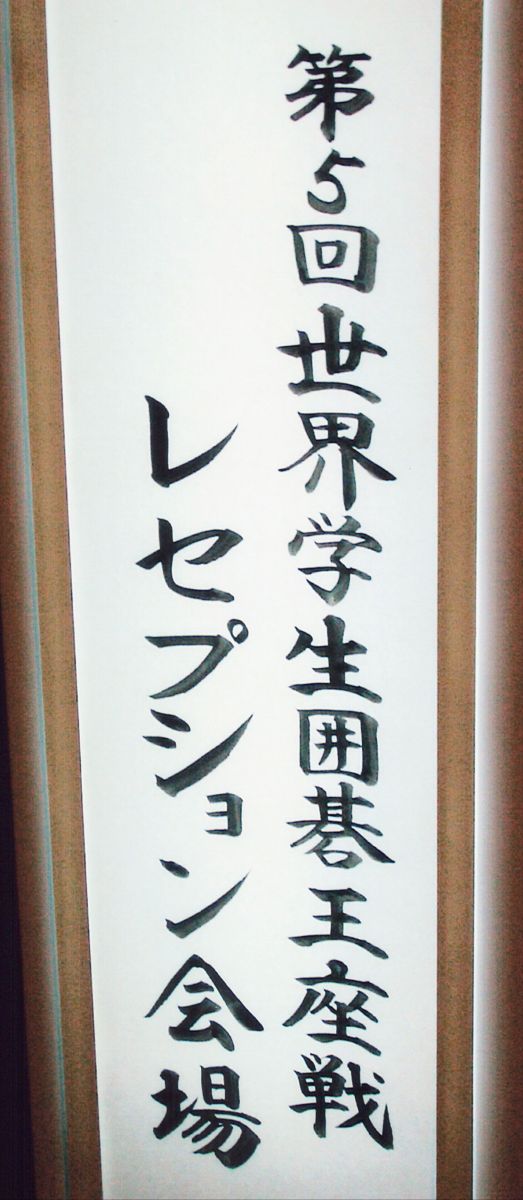 第5回世界学生囲碁王座戦
レセプション会場